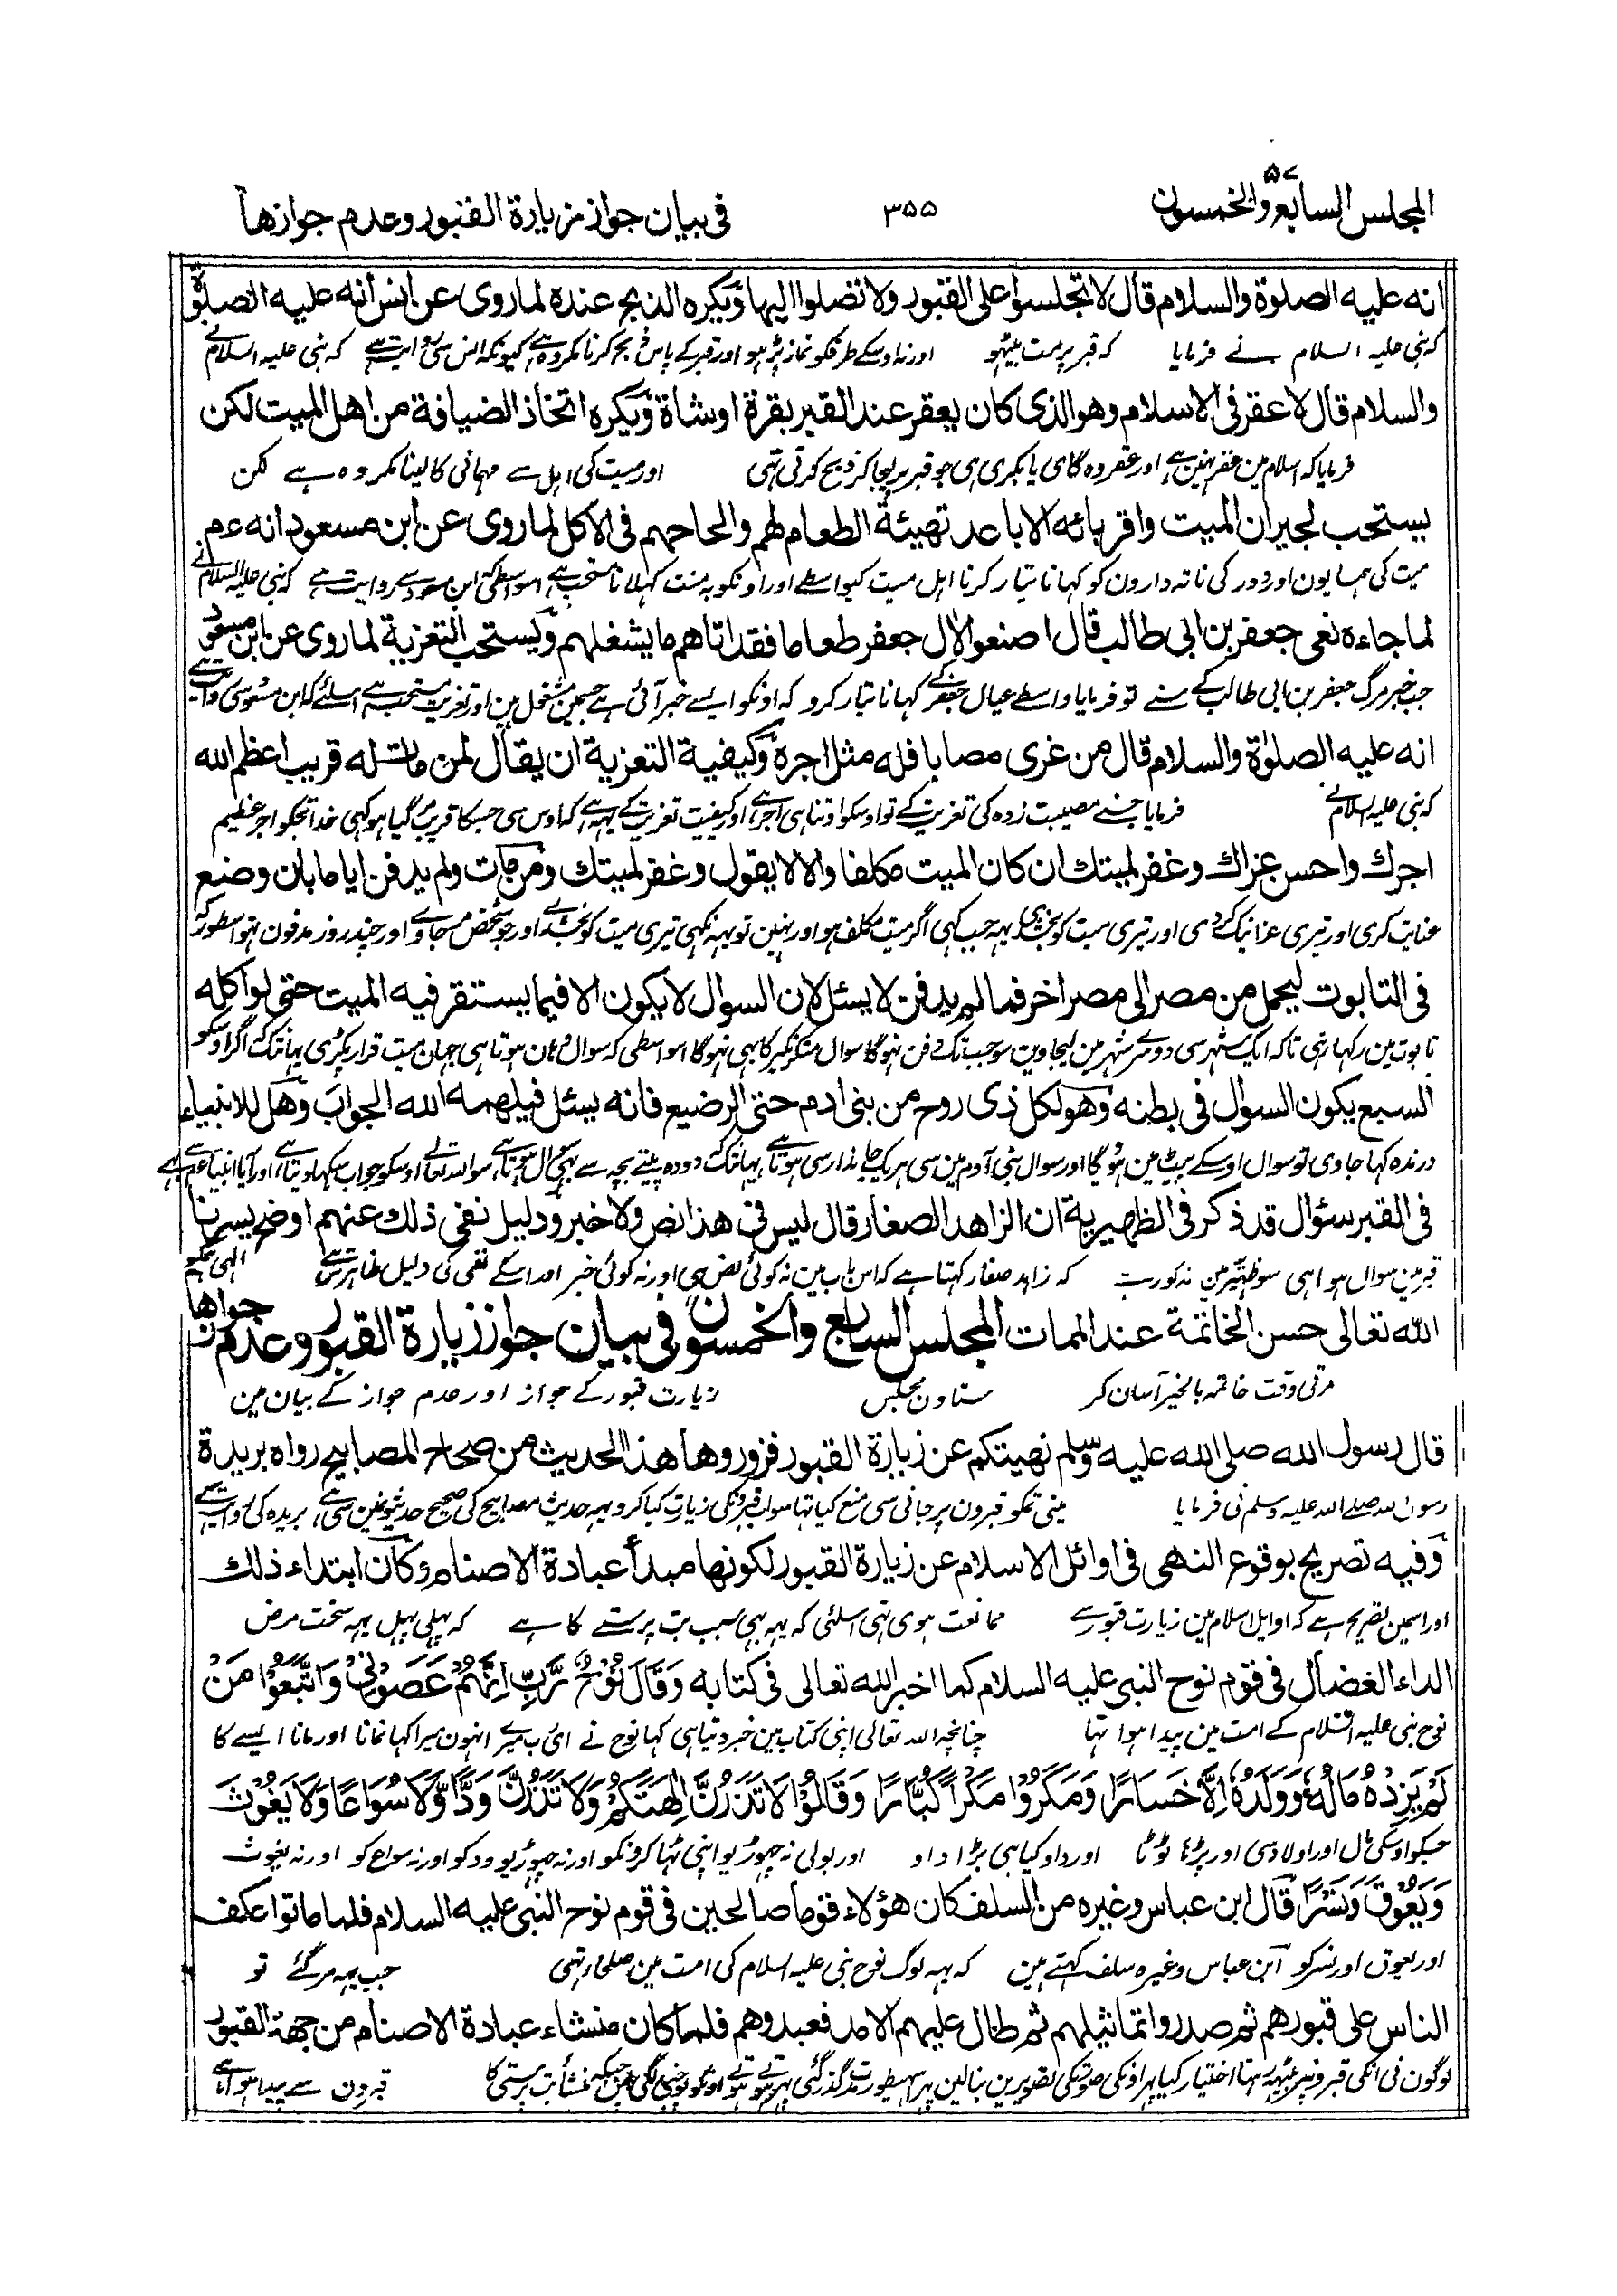 المجلس السابع والخمسون ۵۷
۳۵۵
فی بیان جواز زیارة القبور وعدم جوازها
انه علیه الصلوة والسلام قال لا تجلسوا علی القبور ولا تصلوا الیها ویکره الذبح عنده لما روی عن انس انه علیه الصلوة
که نبی علیه السلام نے فرمایا که قبر پر مت بیٹهو اور نه اوسکے طرفکو نماز پڑهو اور قبر کے پاس ذبح کرنا مکروه ہے کیونکه انس سی روایت ہے که نبی علیه السلام نے
والسلام قال لا عقر فی الاسلام وهو الذی کان یعقر عند القبر بقرة او شاة ویکره اتخاذ الضیافة من اهل المیت لکن
فرمایا که اسلام مین عقر نہین ہے اور عقر وه گای یا بکری ہی جو قبر پر لیجا کر ذبح کرتی تہی اور میت کی اہل سے مہمانی کا لینا مکروه ہے لکن
یستحب لجیران المیت واقربائه الاباعد تهیئة الطعام لهم والحاحهم فی الاکل لما روی عن ابن مسعود انه عم
میت کی ہمسایون اور دور کی ناته دارون کو کہانا تیار کرنا اہل میت کیواسطے اور اونکو بمنت کہلانا مستحب ہے اسواسطے که ابن مسعود سے روایت ہے که نبی علیه السلام نے
لما جاءه نعی جعفر بن ابی طالب قال اصنعوا لال جعفر طعاما فقد اتاهم ما یشغلهم ویستحب التعزیة لما روی عن ابن مسعود
جب خبر مرگ جعفر بن ابی طالب کے سنے تو فرمایا واسطے عیال جعفر کے کہانا تیار کرو که اونکو ایسے خبر آئی ہے جسمین مشغول ہین اور تعزیت مستحب ہے اسلئے که ابن مسعود سی روایت ہے
انه علیه الصلوٰة والسلام قال من عزی مصابا فله مثل اجره وکیفیة التعزیة ان یقال لمن مات له قریب اعظم الله
که نبی علیه السلام نے فرمایا جسنے مصیبت زده کی تعزیت کے تو اوسکو اوتنا ہی اجر ہے اور کیفیت تعزیت کے یہه ہے که اوس سی جسکا قریب مرگیا ہو کہی خدا تجکو اجر عظیم
اجرك واحسن عزاك وغفر لمیتك ان کان المیت مکلفا والا لا یقول وغفر لمیتك ومن مات ولم یدفن ایاما بان وضع
عنایت کری اور تیری عزا نیک کردی اور تیری میت کو بخشدی یہه جب کہی اگر میت مکلف ہو اور نہین تو یہه نکہی تیری میت کو بخشے اور جو شخص مرجاوے اور چند روز مدفون نہوا سطور که
فی التابوت لیحمل من مصر الی مصر اخر فما لم یدفن لا یسئل لان السوال لا یکون الا فیما یستقر فیه المیت حتی لو اکله
تابوت مین رکہا رہی تا که ایک شہر سی دوسرے شہر مین لیجاوین سو جب تک دفن نہوگا سوال منکر نکیر کا بہی نہوگا اسواسطی که سوال وہان ہوتا ہی جہان میت قرار پکڑی یہانتک که اگر اوسکو
السبع یکون السوال فی بطنه وهو لکل ذی روح من بنی ادم حتی الرضیع فانه یسئل فیلهمه الله الجواب وهل للانبیاء
درنده کہا جاوی تو سوال اوسکے پیٹ مین ہوگا اور سوال بنی آدم مین سی ہر یک جاندار سی ہوتا ہے یہانتک که دوده پیتے بچه سے بہی سوال ہوتا ہے سو الله تعالے اوسکو جواب سکہا دیتا ہے اور آیا انبیا سے
فی القبر سؤال قد ذکر فی الظهیریة ان الزاهد الصغار قال لیس فی هذا نص ولا خبر ودلیل نفی ذلك عنهم اوضح یسر لنا
قبر مین سوال ہوا ہی سو ظہیریه مین مذکور ہے که زاہد صفار کہتا ہے که اس باب مین نه کوئی نص ہی اور نه کوئی خبر اور اسکے نفی کی دلیل ظاہر ہے الہی ہمکو
الله تعالی حسن الخاتمة عند الممات المجلس السابع والخمسون فی بیان جواز زیارة القبور وعدم جوازها
مرتی وقت خاتمه بالخیر آسان کر ستاون مجلس زیارت قبور کے جواز اور عدم جواز کے بیان مین
قال رسول الله صلی الله علیه وسلم نهیتکم عن زیارة القبور فزوروها هذا الحدیث من صحاح المصابیح رواه بریدة
رسول الله صلے الله علیه وسلم نی فرمایا مینی تمکو قبرون پر جانی سی منع کیا تہا سو اب قبرونکی زیارت کیا کرو یہه حدیث مصابیح کی صحیح حدیثونمین سی ہے بریده کی روایت سے
وفیه تصریح بوقوع النهی فی اوائل الاسلام عن زیارة القبور لکونها مبدأ عبادة الاصنام وکان ابتداء ذلك
اور اسمین تصریح ہے که اوایل اسلام مین زیارت قبور سے ممانعت ہوی تہی اسلئی که یہه بہی سبب بت پرستے کا ہے که پہلی پہل یہه سخت مرض
الداء العضال فی قوم نوح النبی علیه السلام کما اخبر الله تعالی فی کتابه وَقَالَ نُوْحٌ رَّبِّ اِنَّهُمْ عَصَوْنِیْ وَاتَّبَعُوْا مَنْ
نوح نبی علیه السلام کے امت مین پیدا ہوا تہا چنانچه الله تعالی اپنی کتاب مین خبر دیتا ہی کہا نوح نے ای رب میرے انہون میرا کہا نمانا اور مانا ایسے کا
لَّمْ یَزِدْهُ مَالُهٗ وَوَلَدُهٗ اِلَّا خَسَارًا وَمَکَرُوْا مَکْرًا کُبَّارًا وَقَالُوْا لَا تَذَرُنَّ اٰلِهَتَکُمْ وَلَا تَذَرُنَّ وَدًّا وَّلَا سُوَاعًا وَّلَا یَغُوْثَ
جسکو اوسکی مال اور اولاد سی اور بڑہا ٹوٹا اور داو کیا ہی بڑا داو اور بولی نه چہوڑیو اپنی ٹہاکرونکو اور نه چہوڑیو ود کو اور نه سواع کو اور نه یغوث
وَیَعُوْقَ وَنَسْرًا قال ابن عباس وغیره من السلف کان هؤلاء قوما صالحین فی قوم نوح النبی علیه السلام فلما ماتوا عکف
اور یعوق اور نسر کو ابن عباس وغیره سلف کہتے ہین که یہه لوگ نوح نبی علیه السلام کی امت مین صلحا تہی جب یہه مرگئے تو
الناس علی قبورهم ثم صدروا تماثیلهم ثم طال علیهم الامد فعبدوهم فلما کان منشاء عبادة الاصنام من جهة القبور
لوگون نی انکی قبرونپر بیٹهه رہنا اختیار کیا پہر اونکی صورتونکی تصویرین بنالین پہر اسیطور مدت گذر گئی پہر ہوتے ہوتے اونکو پوجنی لگی جبکه منشأ بت پرستی کا قبرون سے پیدا ہوا ہے